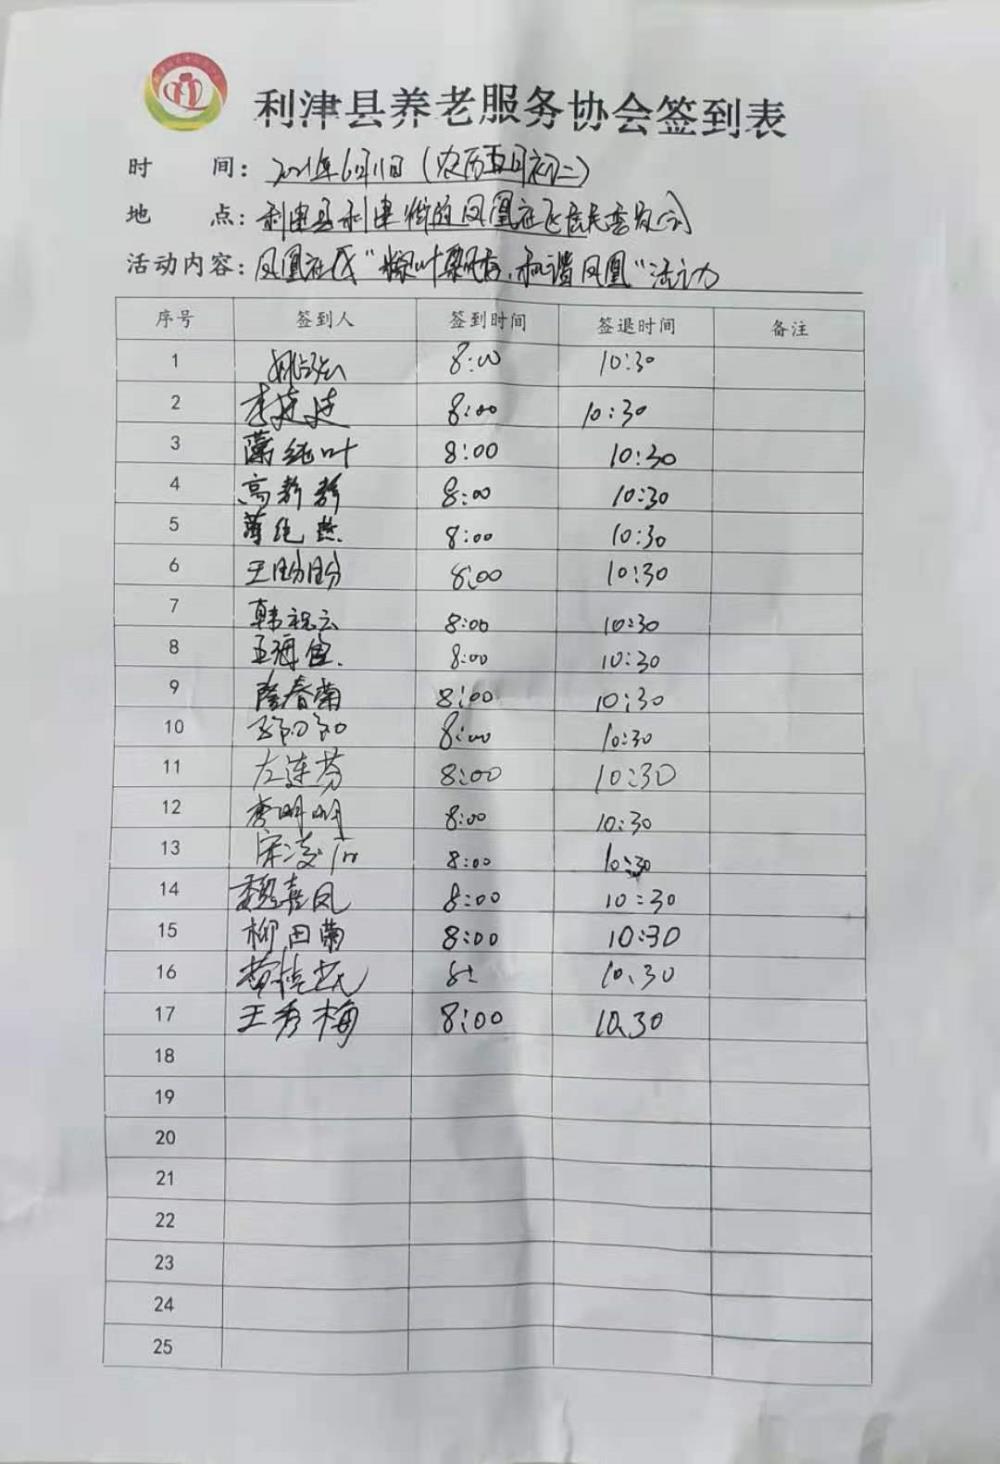 利津县养老服务协会签到表
时 间: 2021年6月11日(农历五月初二)
地 点: 利津县利津街道凤凰社区居民委员会
活动内容: 凤凰社区"粽叶飘香,和谐凤凰"活动
序号 签到人 签到时间 签退时间 备注
1 8:00 10:30
2 李连连 8:00 10:30
3 薄纯叶 8:00 10:30
4 高静静 8:00 10:30
5 薄纯燕 8:00 10:30
6 王盼盼 8:00 10:30
7 韩祝云 8:00 10:30
8 8:00 10:30
9 隆春菊 8:00 10:30
10 8:00 10:30
11 左连芬 8:00 10:30
12 李明明 8:00 10:30
13 8:00 10:30
14 魏喜凤 8:00 10:30
15 柳田菊 8:00 10:30
16 10:30
17 王秀梅 8:00 10:30
18
19
20
21
22
23
24
25